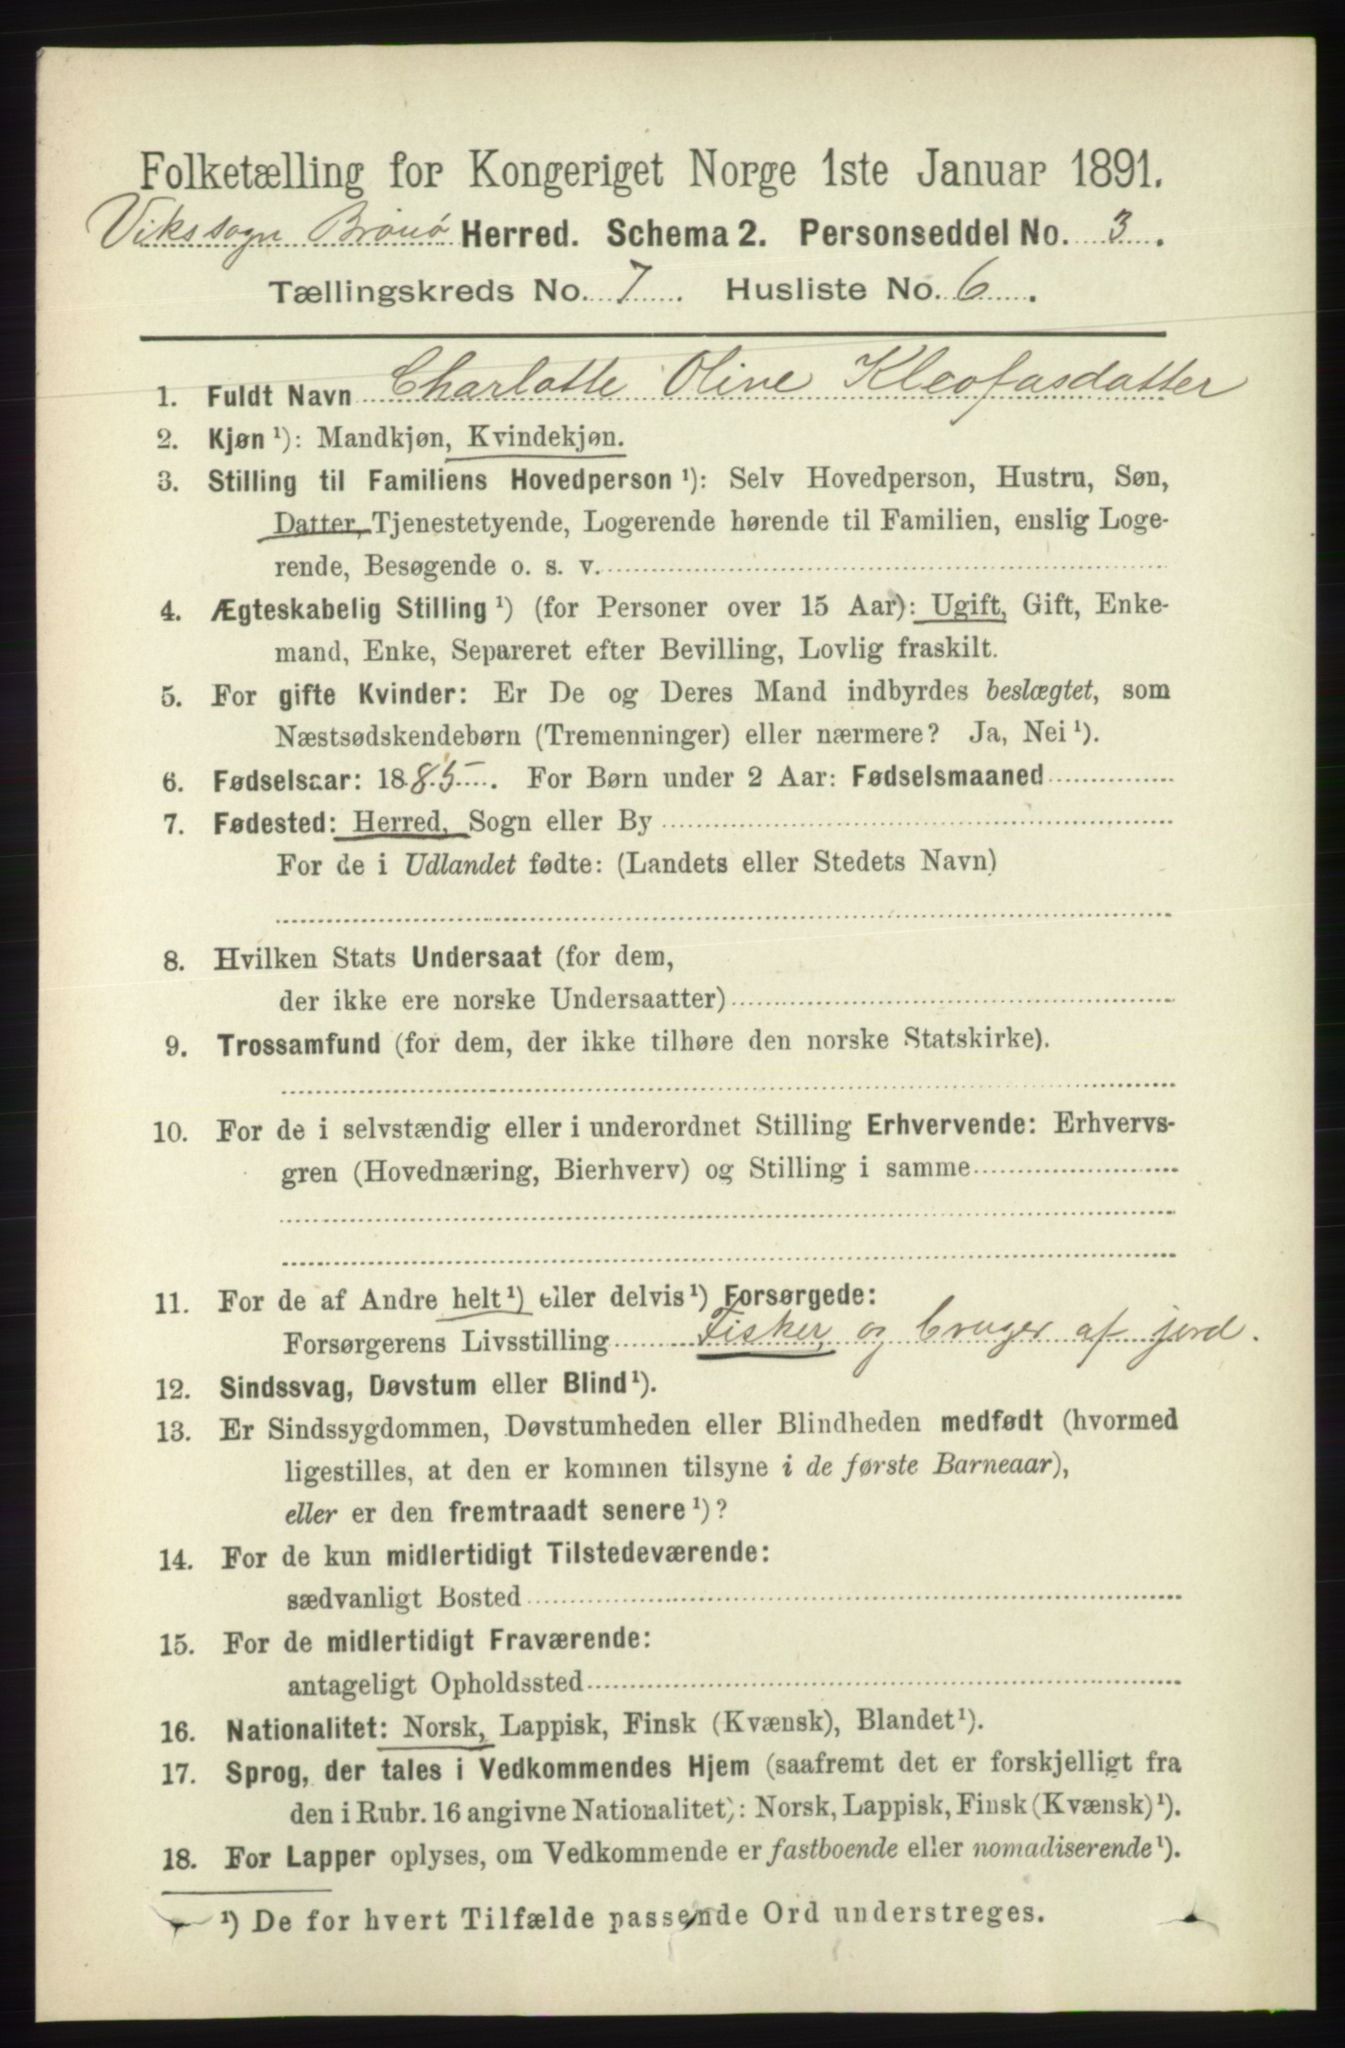 Folketælling for Kongeriget Norge 1ste Januar 1891.
Vikssogn Brønø Herred. Schema 2. Personseddel No. 3.
Tællingskreds No. 7. Husliste No. 6.
1. Fuldt Navn Charlotte Oline Kleofasdatter
2. Kjøn¹): Mandkjøn, Kvindekjøn.
3. Stilling til Familiens Hovedperson¹): Selv Hovedperson, Hustru, Søn,
Datter, Tjenestetyende, Logerende hørende til Familien, enslig Loge-
rende, Besøgende o. s. v.
4. Ægteskabelig Stilling¹) (for Personer over 15 Aar): Ugift, Gift, Enke-
mand, Enke, Separeret efter Bevilling, Lovlig fraskilt.
5. For gifte Kvinder: Er De og Deres Mand indbyrdes beslægtet, som
Næstsødskendebørn (Tremenninger) eller nærmere? Ja, Nei¹).
6. Fødselsaar: 1885. For Børn under 2 Aar: Fødselsmaaned
7. Fødested: Herred, Sogn eller By
For de i Udlandet fødte: (Landets eller Stedets Navn)
8. Hvilken Stats Undersaat (for dem,
der ikke ere norske Undersaatter)
9. Trossamfund (for dem, der ikke tilhøre den norske Statskirke).
10. For de i selvstændig eller i underordnet Stilling Erhvervende: Erhvervs-
gren (Hovednæring, Bierhverv) og Stilling i samme
11. For de af Andre helt¹) eller delvis¹) Forsørgede:
Forsørgerens Livsstilling Fisker og bruger af jord.
12. Sindssvag, Døvstum eller Blind¹).
13. Er Sindssygdommen, Døvstumheden eller Blindheden medfødt (hvormed
ligestilles, at den er kommen tilsyne i de første Barneaar),
eller er den fremtraadt senere¹)?
14. For de kun midlertidigt Tilstedeværende:
sædvanligt Bosted
15. For de midlertidigt Fraværende:
antageligt Opholdssted
16. Nationalitet: Norsk, Lappisk, Finsk (Kvænsk), Blandet¹).
17. Sprog, der tales i Vedkommendes Hjem (saafremt det er forskjelligt fra
den i Rubr. 16 angivne Nationalitet): Norsk, Lappisk, Finsk (Kvænsk)¹).
18. For Lapper oplyses, om Vedkommende er fastboende eller nomadiserende¹).
¹) De for hvert Tilfælde passende Ord understreges.